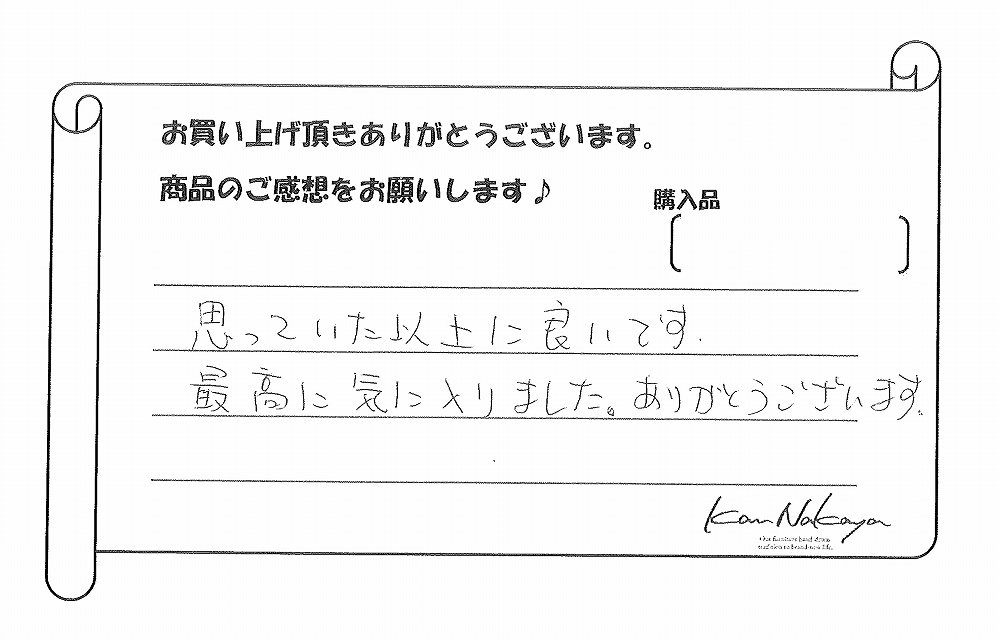 お買い上げ頂きありがとうございます。
商品のご感想をお願いします♪
購入品
思っていた以上に良いです.
最高に気に入りました。ありがとうございます.
Kan Nakaya
Our furniture hand down
tradition to brand-new life.